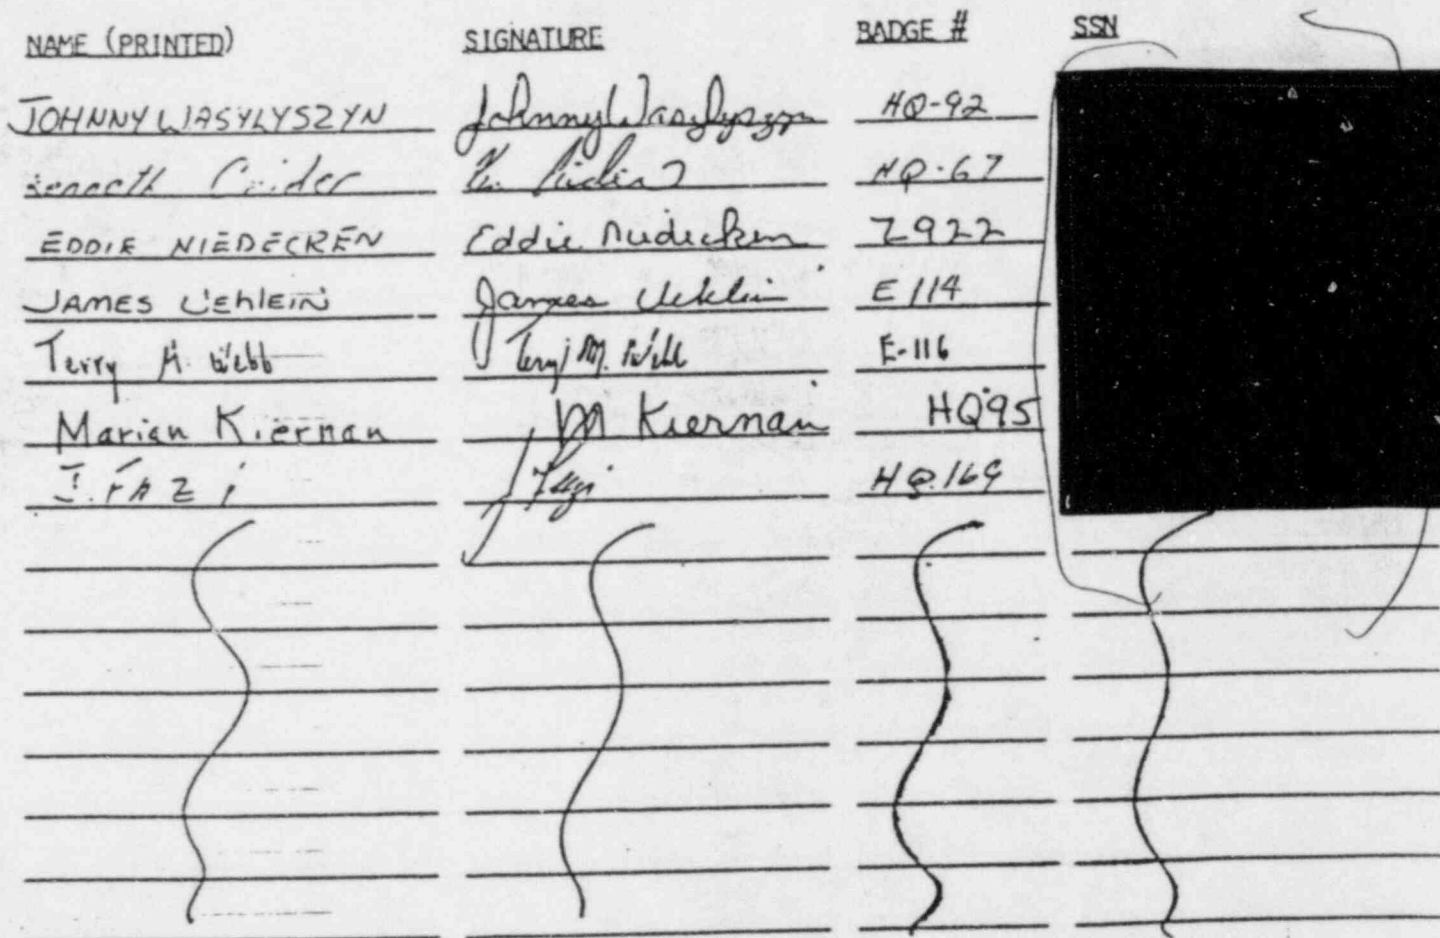 NAME (PRINTED) SIGNATURE BADGE # SSN
JOHNNY WASYLYSZYN Johnny Wasylyszyn HQ-92
Kenneth K. HQ-67
EDDIE NIEDECKEN Eddie Niedecken Z922
JAMES UEhlEIN James Uehlein E114
Terry M. Webb Terry M. Webb E-116
Marian Kiernan M Kiernan HQ95
J. FAZi J Fazi HQ.169